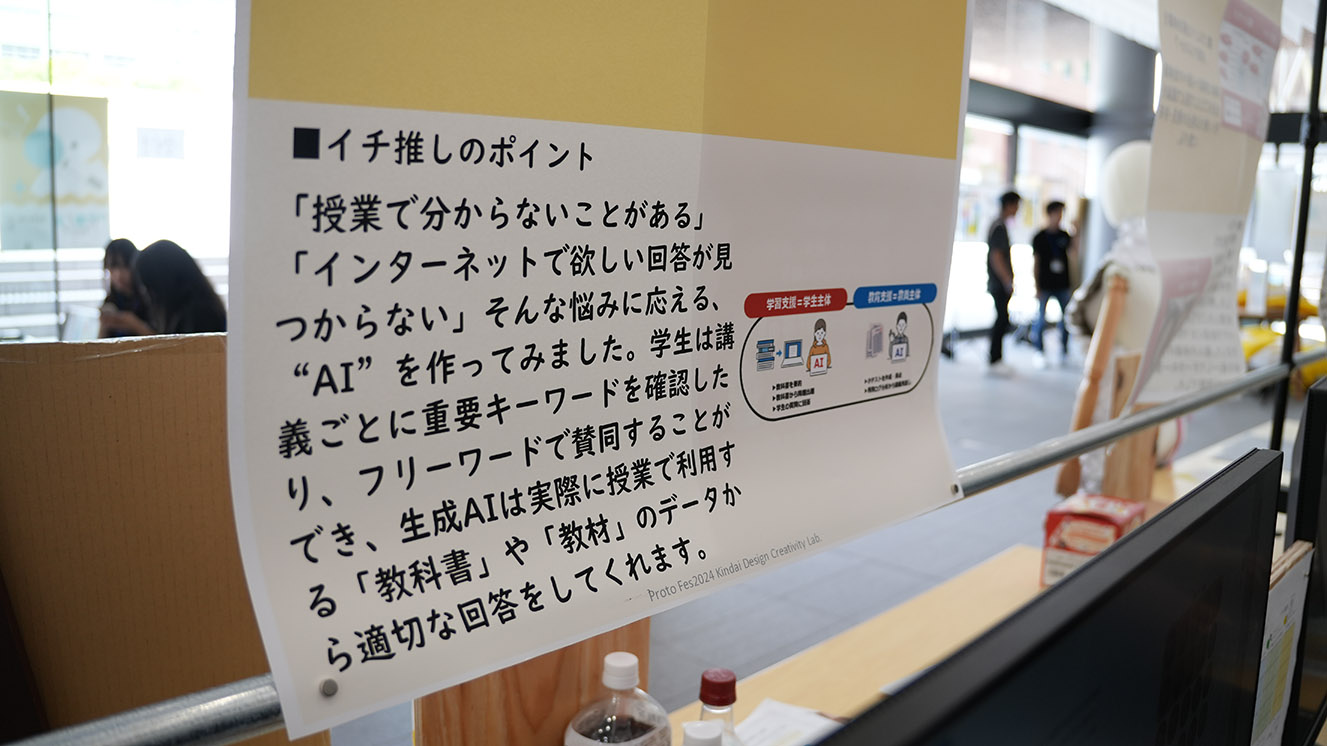 ■イチ推しのポイント
「授業で分からないことがある」
「インターネットで欲しい回答が見
つからない」そんな悩みに応える、
“AI”を作ってみました。学生は講
義ごとに重要キーワードを確認した
り、フリーワードで賛同することが
でき、生成AIは実際に授業で利用す
る「教科書」や「教材」のデータか
ら適切な回答をしてくれます。
学習支援＝学生主体
教育支援＝教員主体
AI
AI
▶教科書を要約
▶教科書から問題出題
▶学生の質問に回答
Proto Fes2024 Kindai Design Creativity Lab.